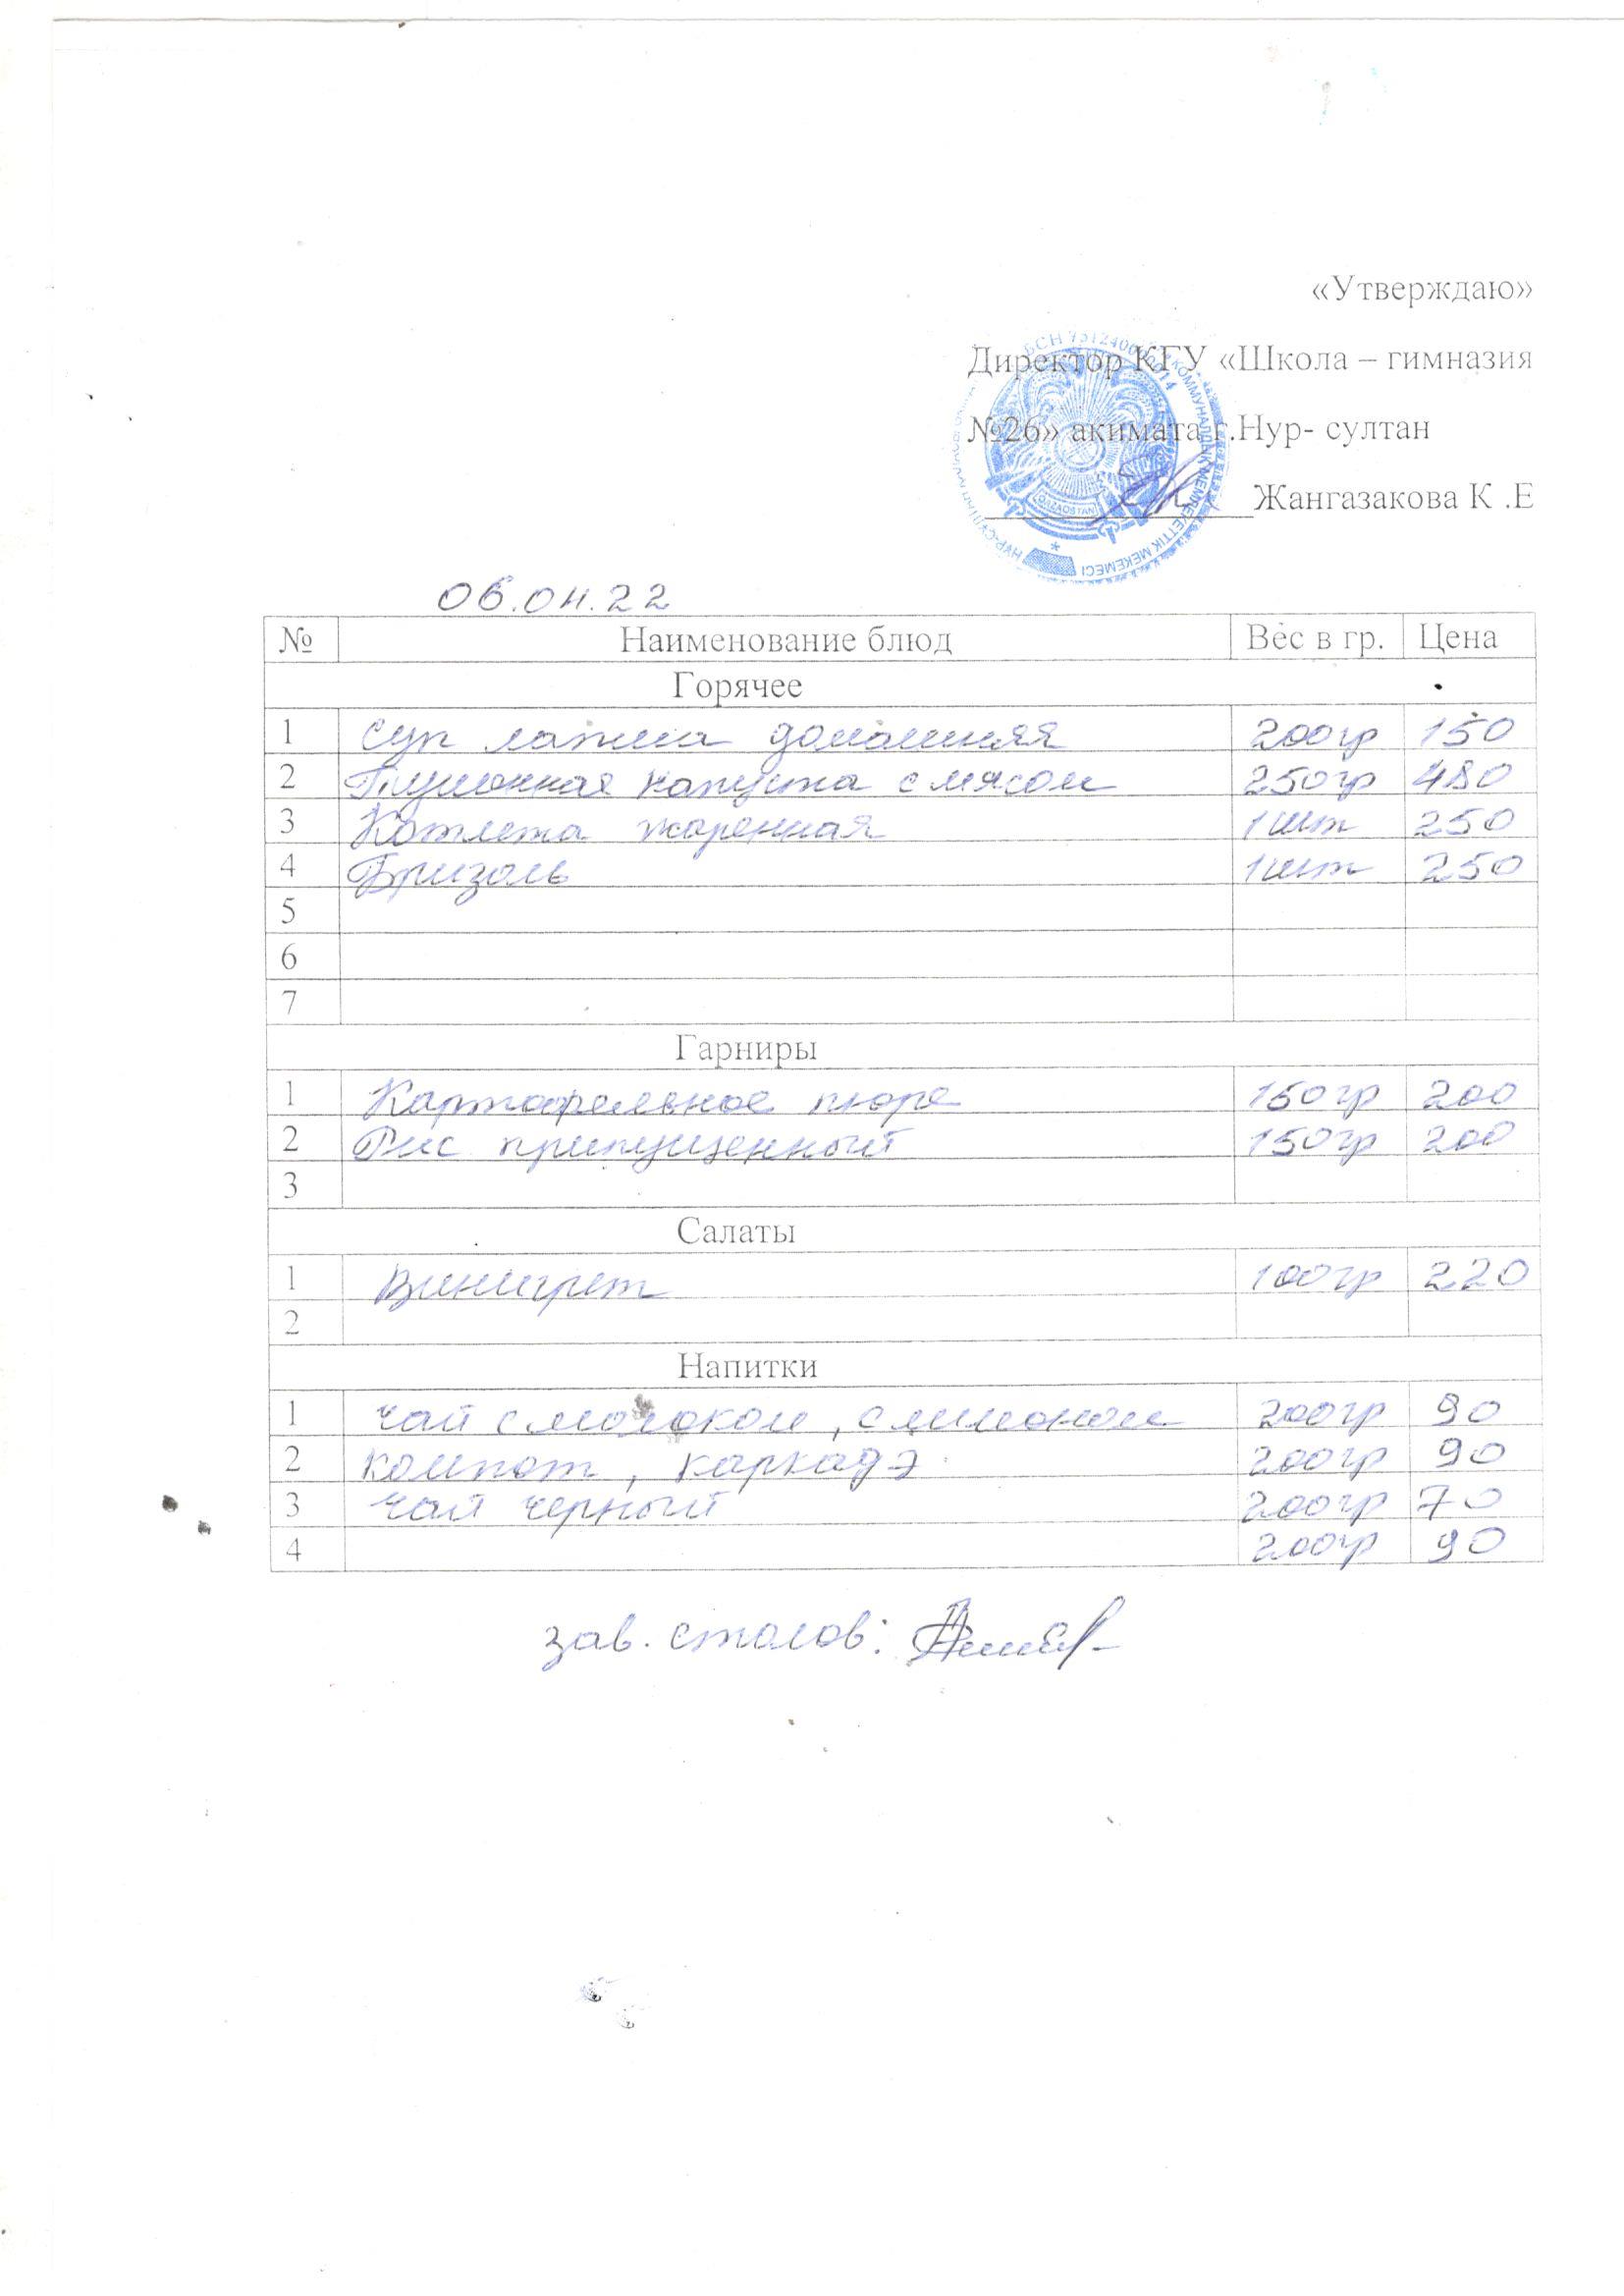 «Утверждаю»
Директор КГУ «Школа – гимназия
№26» акимата г.Нур- султан
Жангазакова К .Е
06.04.22
№ Наименование блюд Вес в гр. Цена
Горячее
1 Суп лапша домашняя 200гр 150
2 Тушонная капуста с мясом 250гр 480
3 Котлета жаренная 1шт 250
4 Бризоль 1шт 250
5
6
7
Гарниры
1 Картофельное пюре 150гр 200
2 Рис припущенный 150гр 200
3
Салаты
1 Винигрет 100гр 220
2
Напитки
1 Чай с молоком, с лимоном 200гр 90
2 Компот, каркадэ 200гр 90
3 Чай черный 200гр 70
4 200гр 90
зав. столов:
QAZAQSTAN
КОММУНАЛДЫҚ МЕМЛЕКЕТТІК МЕКЕМЕСІ